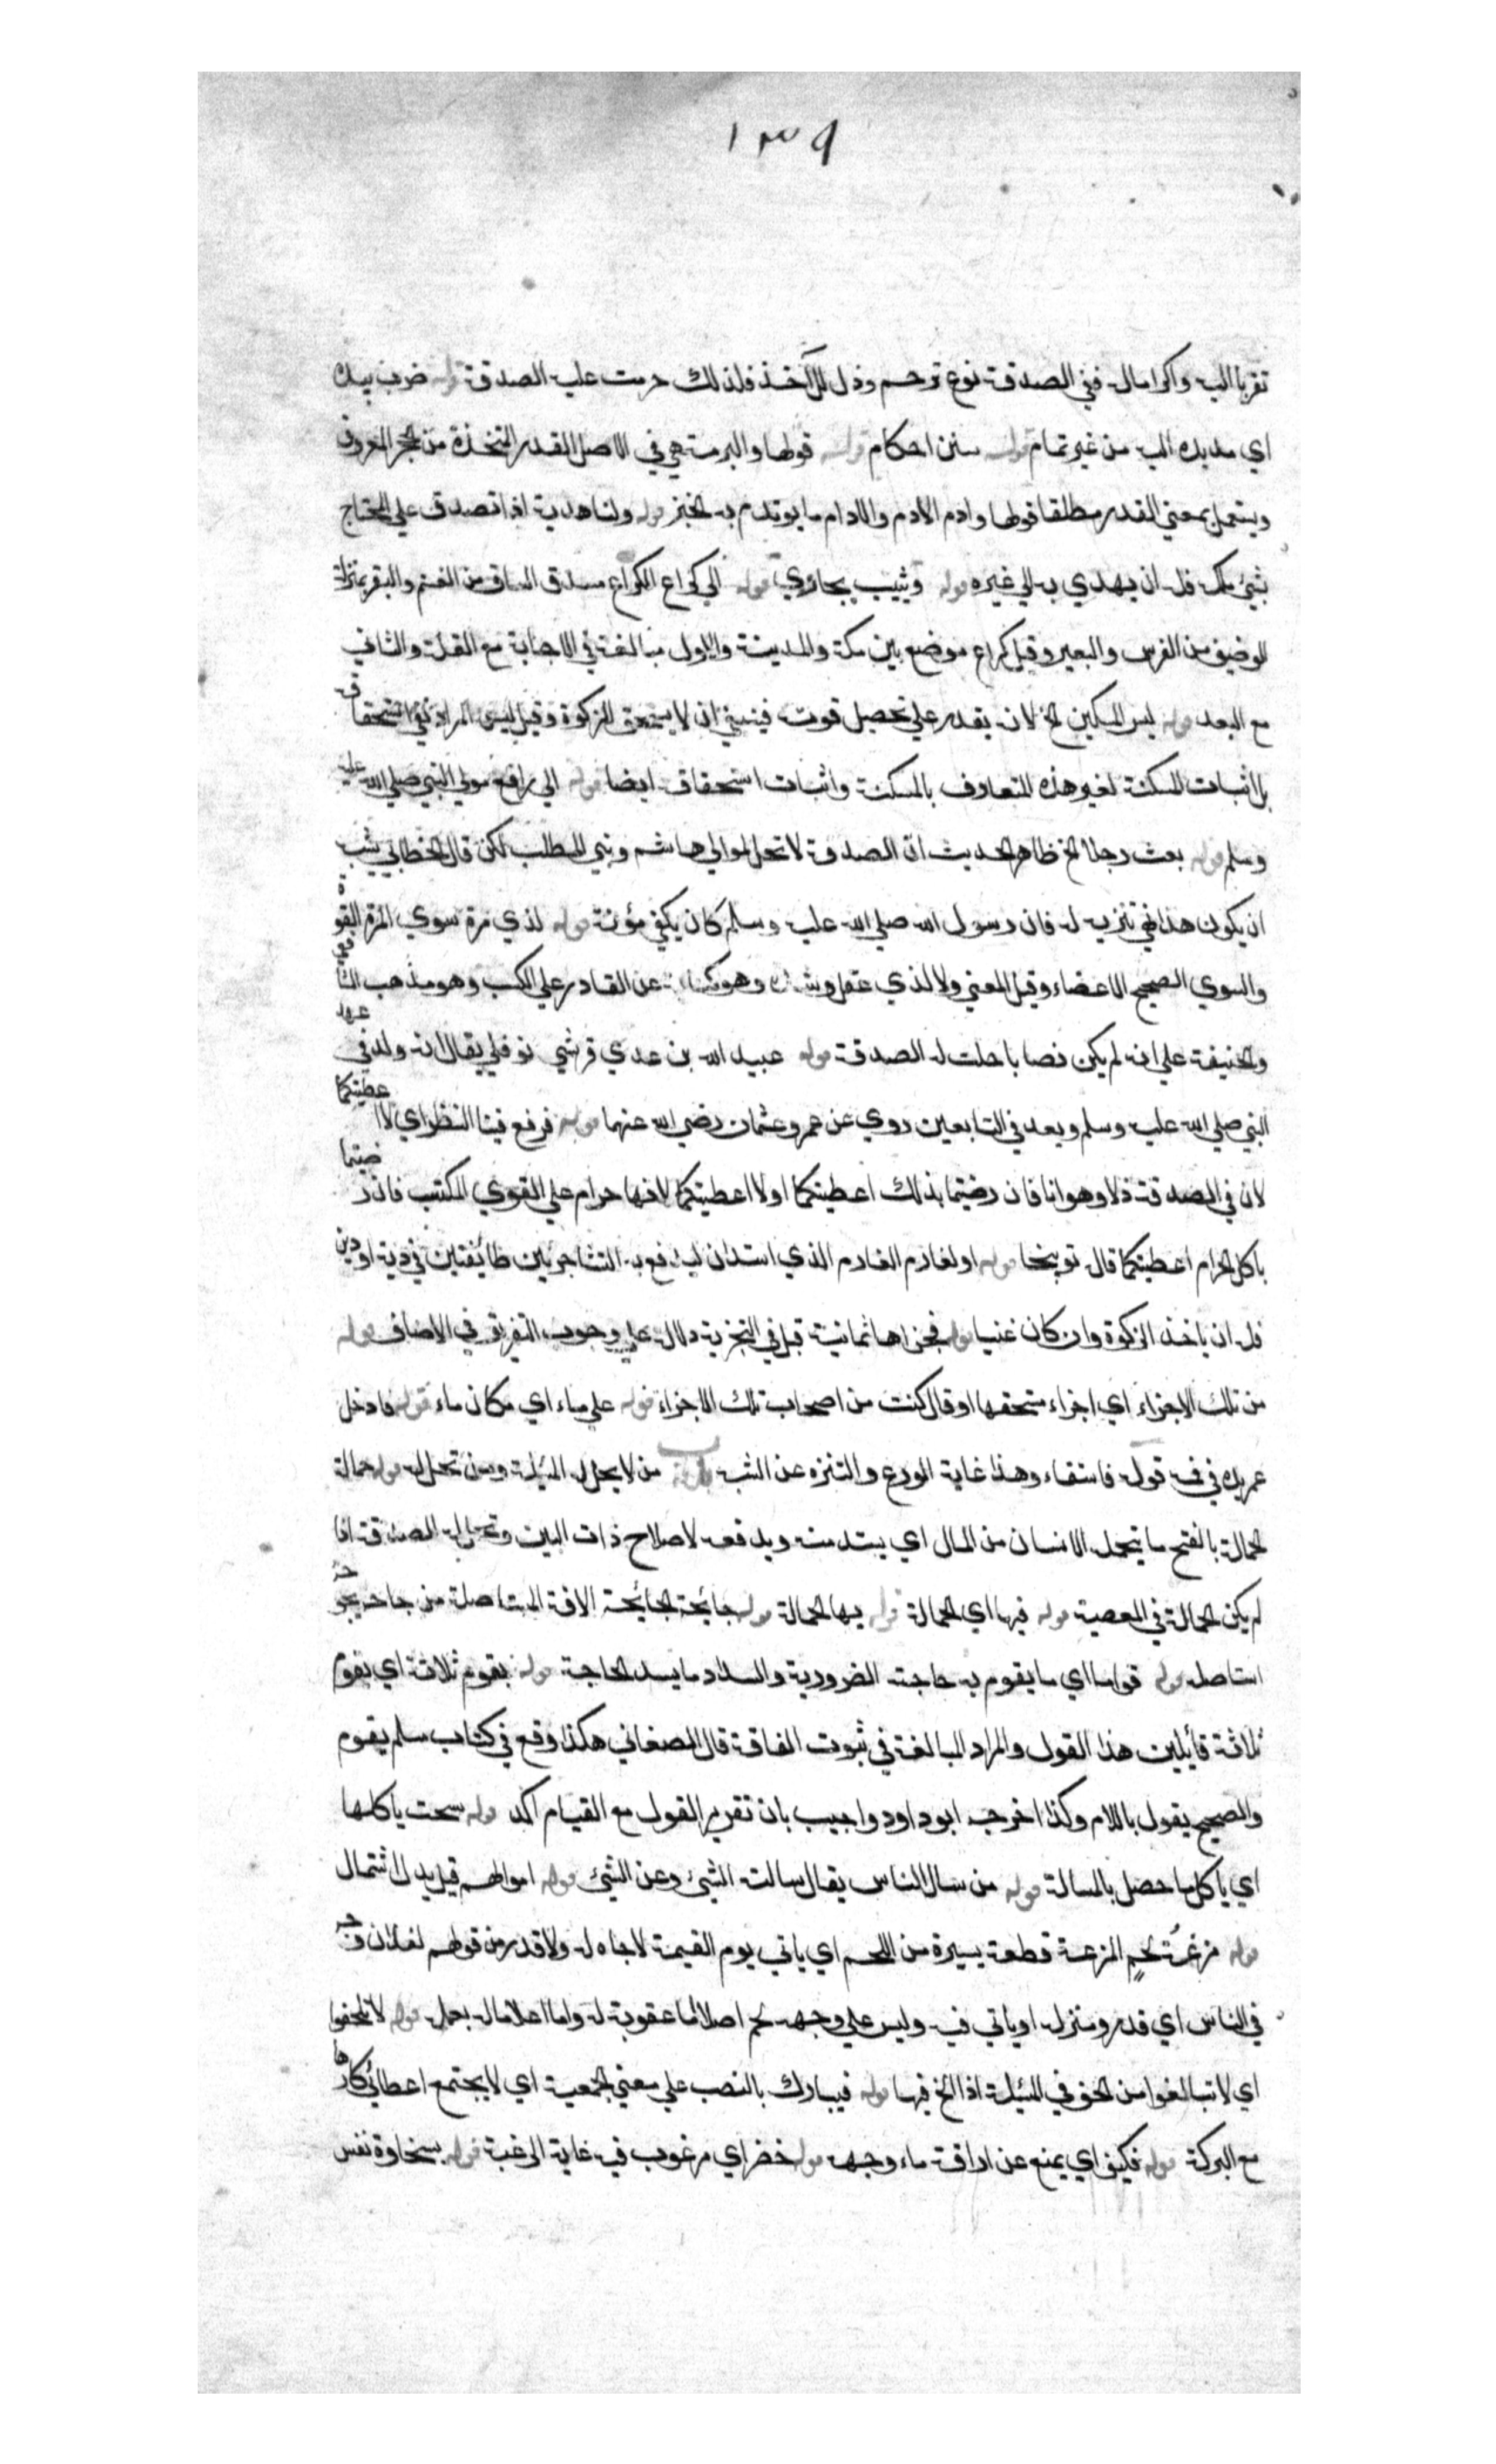 ١٣٩
تقربا اليه واكراما له ففي الصدقة نوع ترحم وذل للآخذ فلذلك حرمت عليه الصدقة قوله ضرب بيده
اي مد يده اليه من غير تمام قوله سنن احكام قوله قولها والبرمة هي في الاصل القدر المتخذة من الحجر المعروف
ويستعمل بمعني القدر مطلقا قولها وادم الادم والادام ما يوتدم به الخبز قوله ولنا هدية اذا تصدق علي المحتاج
بشئ ملكه فله ان يهدي به الي غيره قوله ويثيب يجازي قوله الي كراع الكراع مسدق الساق من الغنم والبقر بمنزلة
الوضيف من الفرس والبعير وقيل كراع موضع بين مكة والمدينة والاول مبالغة في الاجابة مع القلة والثاني
مع البعد قوله ليس المسكين الخ لانه يقدر علي تحصيل قوته فينبغي ان لا يستحق الزكوة وقيل ليس المراد نفي استحقاقه
بل اثبات المسكنة لغير هذه المتعارف بالمسكنة واثبات استحقاقه ايضا قوله ابي رافع مولي النبي صلي الله عليه
وسلم قوله بعث رجلا الخ ظاهر الحديث ان الصدقة لا تحل لموالي هاشم وبني المطلب لكن قال الخطابي يشبه
ان يكون هذا نهي تنزيه له فان رسول الله صلي الله عليه وسلم كان يكفي مؤنته قوله لذي مرة سوي المرة القوة
والسوي الصحيح الاعضاء وقيل المعني ولا لذي عقل وشدة وهو كناية عن القادر علي الكسب وهو مذهب الشافعي
والحنيفة علي انه لم يكن نصابا حلت له الصدقة قوله عبيد الله بن عدي قرشي نوفلي يقال انه ولد في عهد
النبي صلي الله عليه وسلم ويعد في التابعين روي عن عمر وعثمان رضي الله عنهما قوله فرفع فينا النظر اي لا اعطيتكما
لان في الصدقة ذلا وهوانا فان رضيتما بذلك اعطيتكما او لا اعطيتكما لانها حرام علي القوي المكتسب فان رضيتما
باكل الحرام اعطيتكما قاله توبيخا قوله او لغارم الغارم الذي استدان ليدفع به التشاجر بين طائفتين في دية او دين
فله ان ياخذ الزكوة وان كان غنيا قوله فجزاها ثمانية قيل في التجزية دلالة علي وجوب التفريق في الاصناف قوله
من تلك الاجزاء اي اجزاء مستحقها او قال كنت من اصحاب تلك الاجزاء قوله علي ماء اي مكان ماء قوله فادخل
عمر يده في فيه قوله فاستقاء وهذا غاية الورع والتنزه عن الشبه باب من لا يحل له المسئلة ومن تحل له قوله حمالة
الحمالة بالفتح ما يتحمله الانسان من المال اي يستدينه ويدفعه لاصلاح ذات البين وتحل له الصدقة اذا
لم يكن الحمالة في المعصية قوله فيها اي الحمالة قوله بها الحمالة قوله جائحة الجائحة الافة المستاصلة من جاحه يجوحه
استاصله قوله قواما اي ما يقوم به حاجته الضرورية والسداد ما يسد الحاجة قوله يقوم ثلاثة اي يقوم
ثلاثة قائلين هذا القول والمراد المبالغة في ثبوت الفاقة قال الصغاني هكذا وقع في كتاب مسلم يقوم
والصحيح يقول باللام وكذا اخرجه ابو داود واجيب بان تقرير القول مع القيام اكد قوله سحت ياكلها
اي ياكل ما حصل بالمسالة قوله من سال الناس يقال سالته الشئ وعن الشئ قوله اموالهم قيل بدل اشتمال
قوله مزعة لحم المزعة قطعة يسيرة من اللحم اي ياتي يوم القيمة لا جاه له ولا قدر من قولهم لفلان وجه
في الناس اي قدر ومنزلة او ياتي فيه وليس علي وجهه لحم اصلا اما عقوبة له واما اعلاما له بعمله قوله لا تلحفوا
اي لا تبالغوا من الحف في المسئلة اذا الح فيها قوله فيبارك بالنصب علي معني الجمعية اي لا يجتمع اعطائي كارها
مع البركة قوله فيكف اي يمنع عن اراقة ماء وجهه قوله خضر اي مرغوب فيه غاية الرغبة قوله بسخاوة نفس